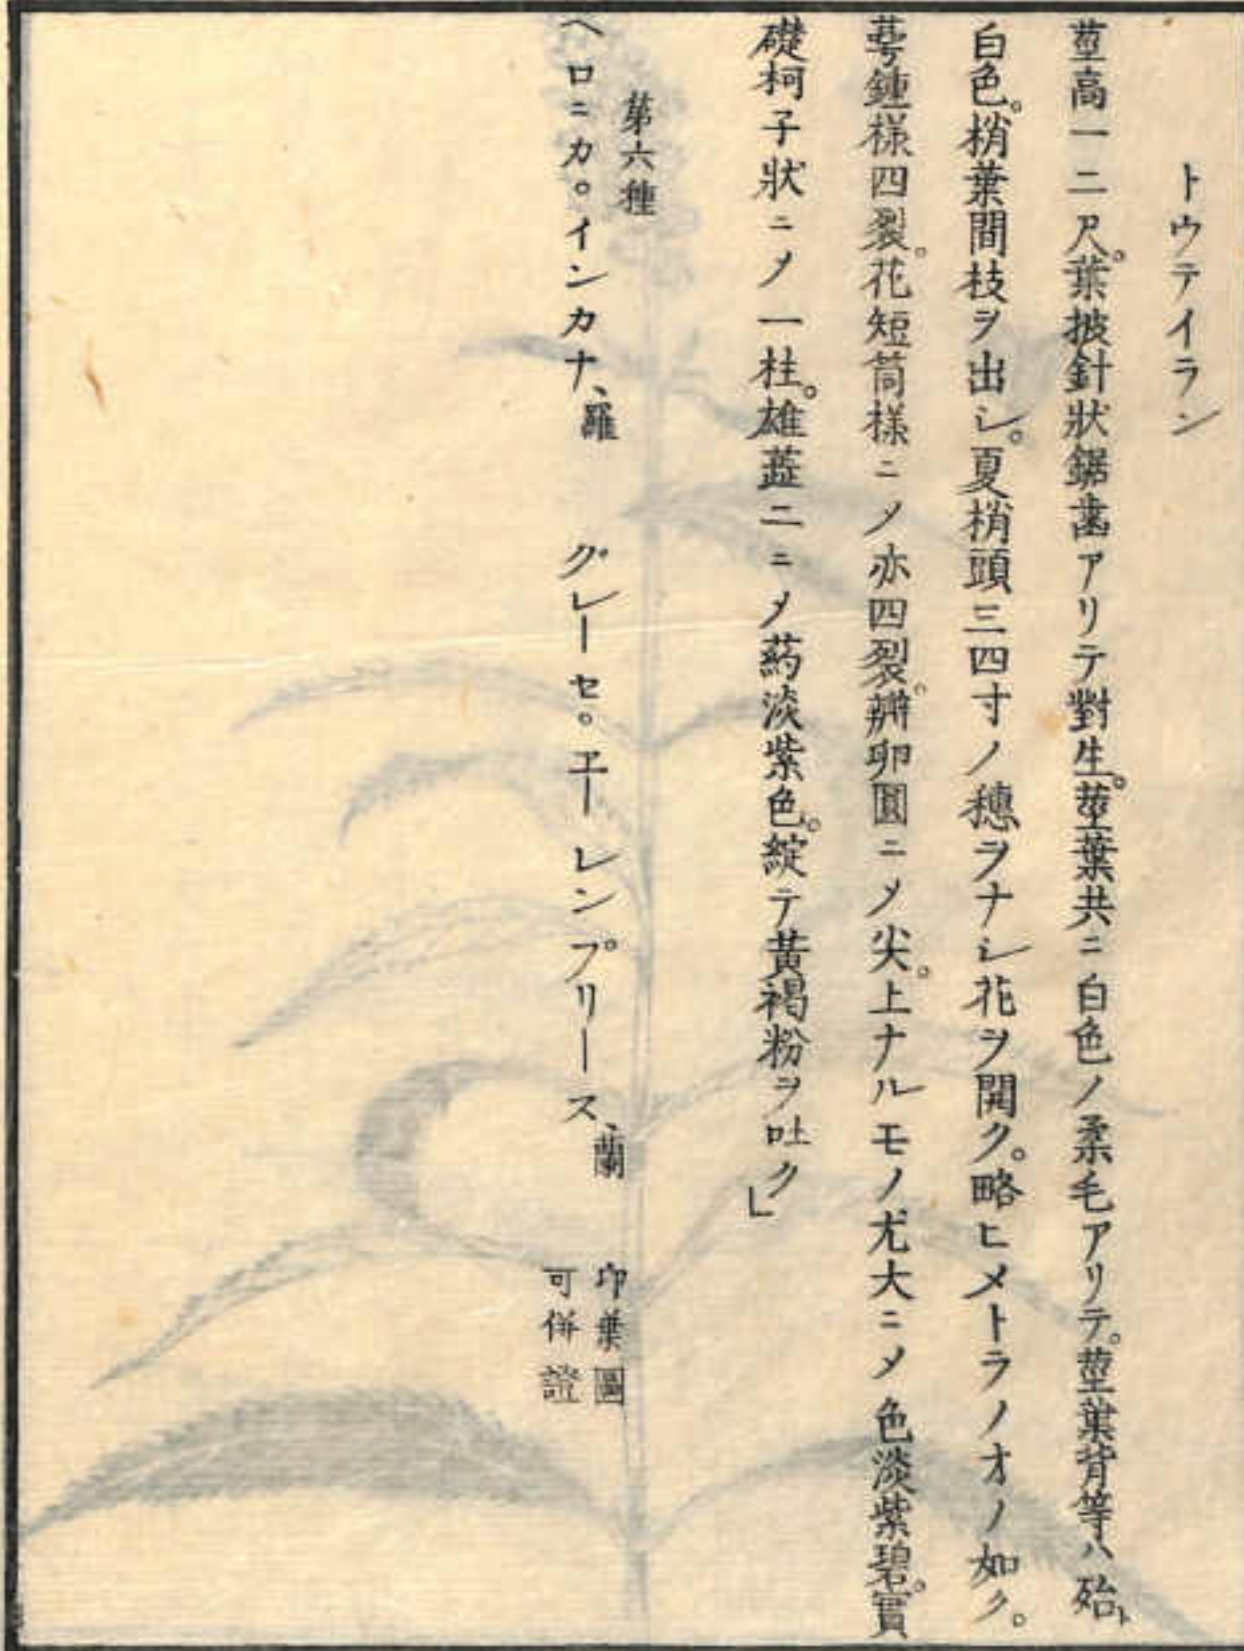 トウテイラン
莖高一二尺。葉披針狀鋸齒アリテ對生。莖葉共ニ白色ノ柔毛アリテ。莖葉背等ハ殆ト
白色。梢葉間枝ヲ出シ。夏梢頭三四寸ノ穗ヲナシ花ヲ開ク。略ヒメトラノオノ如ク。
萼鐘樣四裂。花短筒樣ニ〆亦四裂。瓣卵圓ニ〆尖。上ナルモノ尤大ニ〆色淡紫碧。實
礎柯子狀ニ〆一柱。雄蕋二ニ〆葯淡紫色。綻テ黃褐粉ヲ吐ク」
第六種
ヘロニカ。インカナ、羅 グレーセ。エーレンプリース、蘭 印葉圖
可併證